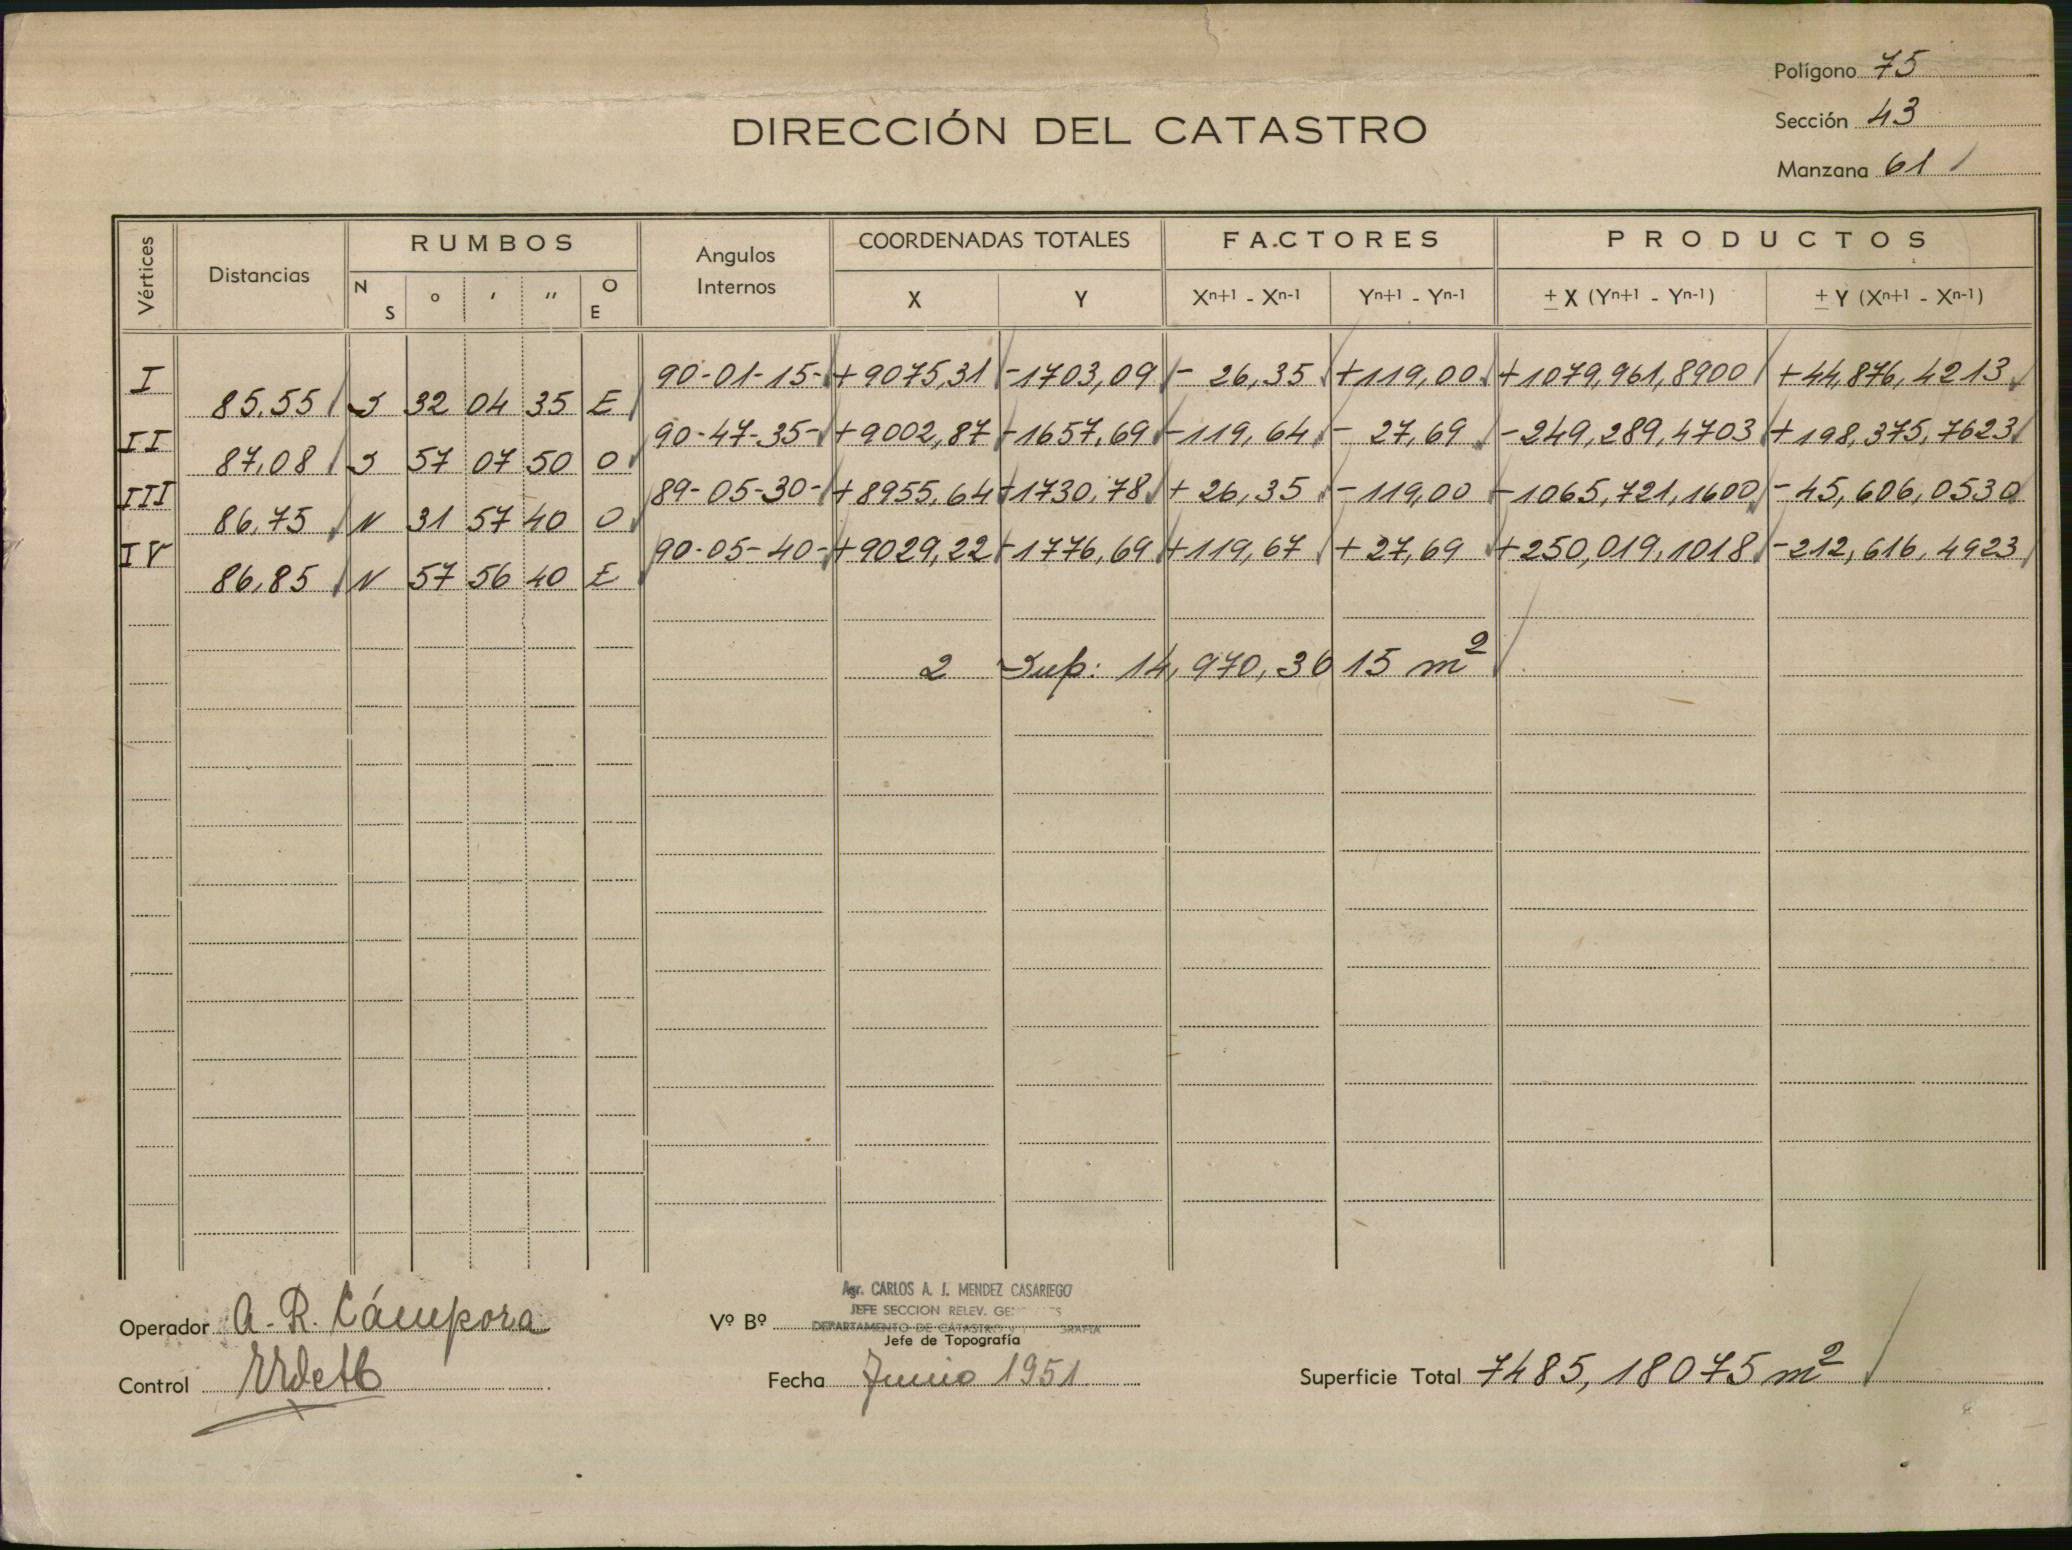 Polígono 75
Sección 43
Manzana 61
DIRECCIÓN DEL CATASTRO
Vértices Distancias RUMBOS Angulos Internos COORDENADAS TOTALES FACTORES PRODUCTOS
N S ° ' " O E X Y Xn+1 - Xn-1 Yn+1 - Yn-1 ± X (Yn+1 - Yn-1) ± Y (Xn+1 - Xn-1)
I 90-01-15- +9075,31 -1703,09 - 26,35 +119,00 +1079,961,8900 +44,876,4213
85,55 S 32 04 35 E
II 90-47-35- +9002,87 -1657,69 -119,64 - 27,69 -249,289,4703 +198,375,7623
87,08 S 57 07 50 O
III 89-05-30- +8955,64 -1730,78 + 26,35 -119,00 -1065,721,1600 -45,606,0530
86,75 N 31 57 40 O
IV 90-05-40- +9029,22 -1776,69 +119,67 +27,69 +250,019,1018 -212,616,4923
86,85 N 57 56 40 E
2 Sup: 14,970,3615 m²
Agr. CARLOS A. J. MENDEZ CASARIEGO
JEFE SECCION RELEV.
Operador A. R. Cámpora Vº Bº DEPARTAMENTO DE CATASTRO
Jefe de Topografía
Control Fecha Junio 1951 Superficie Total 7485,18075 m²